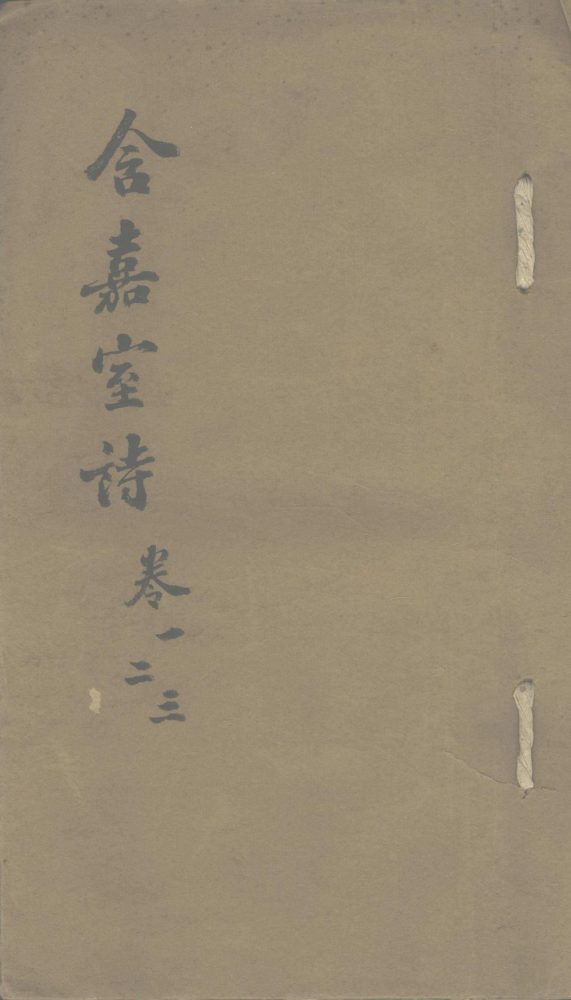 含嘉室詩
卷一二三